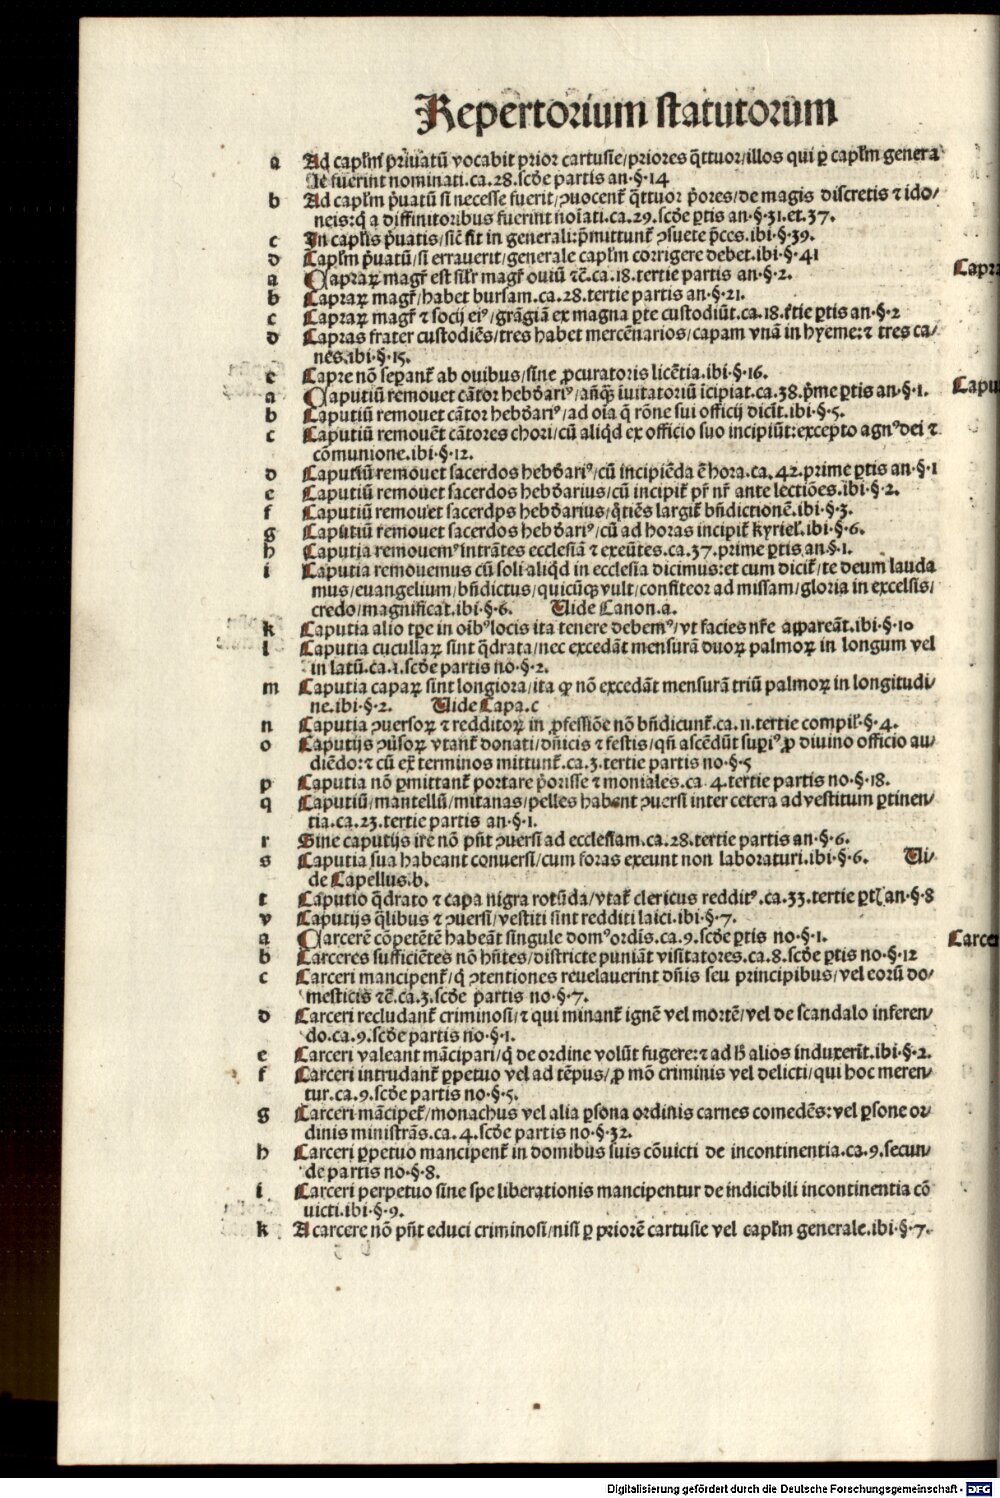 Repertorium statutorum
a Ad caplm̄ priuatū vocabit prior cartusie/priores q̄ttuor/illos qui ꝑ caplm̄ genera
le fuerint nominati.ca.28.scd̄e partis an.§.14
b Ad caplm̄ p̄uatū si necesse fuerit/ꝯuocent᷑ q̄ttuor p̄ores/de magis discretis ⁊ ido/
neis:q̄ a diffinitoribus fuerint noīati.ca.29.scd̄e ꝑtis an.§.31.et.37.
c In caplīs p̄uatis/sic̄ fit in generali:p̄mittunt᷑ ꝯsuete p̄ces.ibi.§.39.
d Caplm̄ p̄uatū/si errauerit/generale caplm̄ corrigere debet.ibi.§.41
Capra
a Capraꝝ magr̄ est sil̄r magr̄ ouiū ⁊c̄.ca.18.tertie partis an.§.2.
b Capraꝝ magr̄/habet bursam.ca.28.tertie partis an.§.21.
c Capraꝝ magr̄ ⁊ socij eiꝰ/grāgiā ex magna ꝑte custodiūt.ca.18.t̄tie ꝑtis an.§.2
d Capras frater custodiēs/tres habet mercēnarios/capam vnā in hyeme:⁊ tres ca/
nes.ibi.§.15.
e Capre nō seꝑant᷑ ab ouibus/sine ꝓcuratoris licētia.ibi.§.16.
Capu
a Caputiū remouet cātor hebd̄ariꝰ/añꝙ̄ īuitatoriū īcipiat.ca.38.p̄me ꝑtis an.§.1.
b Caputiū remouet cātor hebd̄ariꝰ/ad oīa q̄ rōne sui officij dicit᷑.ibi.§.5.
c Caputiū remouēt cātores chori/cū aliqd̄ ex officio suo incipiūt:excepto agnꝰdei ⁊
cōmunione.ibi.§.12.
d Caputiū remouet sacerdos hebd̄ariꝰ/cū incipiēda ē hora.ca.42.prime ꝑtis an.§.1
e Caputiū remouet sacerdos hebd̄arius/cū incipit᷑ pr̄ nr̄ ante lectiōes.ibi.§.2.
f Caputiū remouet sacerdos hebd̄arius/q̄tiēs largit᷑ bn̄dictionē.ibi.§.3.
g Caputiū remouet sacerdos hebd̄ariꝰ/cū ad horas incipit᷑ kyriel̄.ibi.§.6.
h Caputia remouemꝰ intrātes ecclesiā ⁊ exeūtes.ca.37.prime ꝑtis an.§.1.
i Caputia remouemus cū soli aliqd̄ in ecclesia dicimus:et cum dicit᷑/te deum lauda
mus/euangelium/bn̄dictus/quicūqꝫ vult/confiteor ad missam/gloria in excelsis/
credo/magnificat.ibi.§.6. Uide Canon.a.
k Caputia alio tꝑe in oībꝰ locis ita tenere debemꝰ/vt facies nr̄e appareāt.ibi.§.10
l Caputia cucullaꝝ sint q̄drata/nec excedāt mensurā duoꝝ palmoꝝ in longum vel
in latū.ca.1.scd̄e partis no.§.2.
m Caputia capaꝝ sint longiora/ita ꝙ nō excedāt mensurā triū palmoꝝ in longitudi/
ne.ibi.§.2. Uide Capa.c
n Caputia ꝯuersoꝝ ⁊ redditoꝝ in ꝓfessiōe nō bn̄dicunt᷑.ca.11.tertie compil̄.§.4.
o Caputijs ꝯūsoꝝ vtant᷑ donati/dn̄icis ⁊ festis/qn̄ ascēdūt suꝑiꝰ ꝓ diuino officio au/
diēdo:⁊ cū ex̄ terminos mittunt᷑.ca.3.tertie partis no.§.5
p Caputia nō ꝑmittant᷑ portare p̄orisse ⁊ moniales.ca.4.tertie partis no.§.18.
q Caputiū/mantellū/mitanas/pelles habent ꝯuersi inter cetera ad vestitum ꝑtinen/
tia.ca.23.tertie partis an.§.1.
r Sine caputijs ire nō pn̄t ꝯuersi ad ecclesiam.ca.28.tertie partis an.§.6.
s Caputia sua habeant conuersi/cum foras exeunt non laboraturi.ibi.§.6. Ui/
de Capellus.b.
t Caputio q̄drato ⁊ capa nigra rotūda/vtat᷑ clericus redditꝰ.ca.33.tertie ꝑtꝭ an.§.8
v Caputijs q̄libus ⁊ ꝯuersi/vestiti sint redditi laici.ibi.§.7.
Carce
a Carcerē cōpetētē habeāt singule domꝰ ordīs.ca.9.scd̄e ꝑtis no.§.1.
b Carceres sufficiētes nō hn̄tes/districte puniāt visitatores.ca.8.scd̄e ꝑtis no.§.12
c Carceri mancipent᷑/q̄ ꝯtentiones reuelauerint dn̄is seu principibus/vel eorū do/
mesticis ⁊c̄.ca.3.scd̄e partis no.§.7.
d Carceri recludant᷑ criminosi/⁊ qui minant᷑ ignē vel mortē/vel de scandalo inferen/
do.ca.9.scd̄e partis no.§.1.
e Carceri valeant mācipari/q̄ de ordine volūt fugere:⁊ ad h̄ alios induxerīt.ibi.§.2.
f Carceri intrudant᷑ ꝑpetuo vel ad tēpus/ꝓ mō criminis vel delicti/qui hoc meren/
tur.ca.9.scd̄e partis no.§.5.
g Carceri mācipet᷑/monachus vel alia ꝑsona ordinis carnes comedēs:vel ꝑsone or/
dinis ministrās.ca.4.scd̄e partis no.§.32.
h Carceri ꝑpetuo mancipent᷑ in domibus suis cōuicti de incontinentia.ca.9.secun/
de partis no.§.8.
i Carceri perpetuo sine spe liberationis mancipentur de indicibili incontinentia cō
uicti.ibi.§.9.
k A carcere nō pn̄t educi criminosi/nisi ꝑ priorē cartusie vel caplm̄ generale.ibi.§.7.
Digitalisierung gefördert durch die Deutsche Forschungsgemeinschaft - DFG